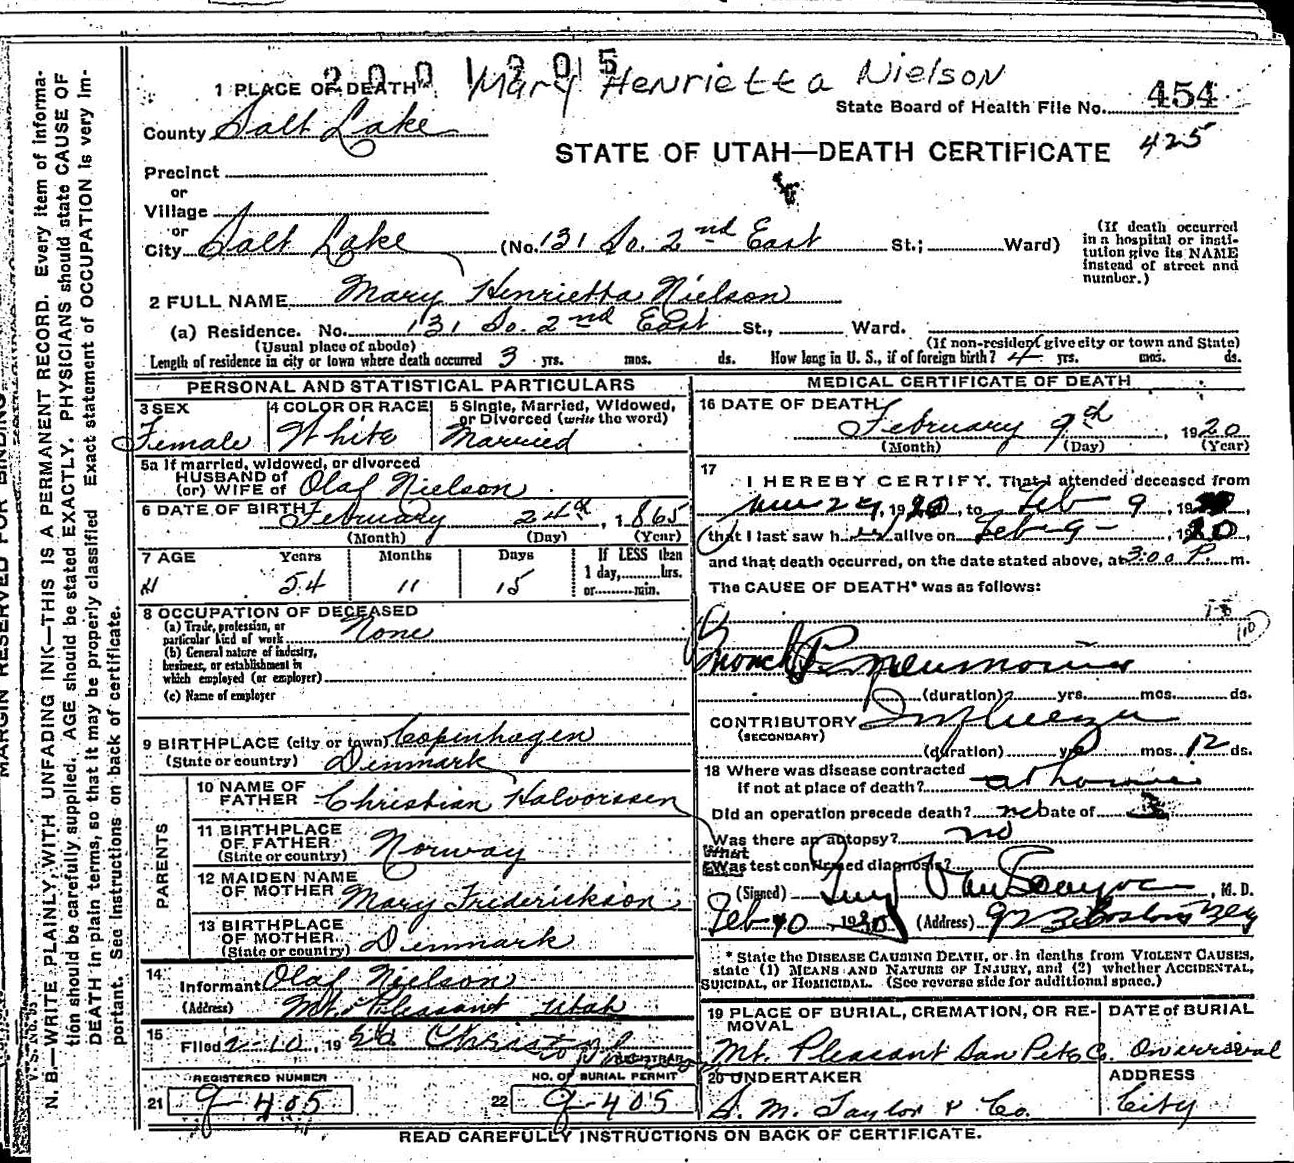 2001205
Mary Henrietta Nielson
1 PLACE OF DEATH
State Board of Health File No. 454
County Salt Lake
425
STATE OF UTAH—DEATH CERTIFICATE
Precinct
or
Village
or
City Salt Lake (No. 131 So. 2nd East St.; Ward)
(If death occurred in a hospital or insti-
tution give its NAME
instead of street and
number.)
2 FULL NAME Mary Henrietta Nielson
(a) Residence. No. 131 So. 2nd East St., Ward.
(Usual place of abode) (If non-resident give city or town and State)
Length of residence in city or town where death occurred 3 yrs. mos. ds. How long in U. S., if of foreign birth? 4 yrs. mos. ds.
PERSONAL AND STATISTICAL PARTICULARS
3 SEX
Female
4 COLOR OR RACE
White
5 Single, Married, Widowed,
or Divorced (write the word)
Married
5a If married, widowed, or divorced
HUSBAND of
(or) WIFE of Olaf Nielson
6 DATE OF BIRTH February 24th, 1865
(Month) (Day) (Year)
7 AGE Years Months Days If LESS than
1 day, hrs.
or min.
54 11 15
8 OCCUPATION OF DECEASED
(a) Trade, profession, or
particular kind of work None
(b) General nature of industry,
business, or establishment in
which employed (or employer)
(c) Name of employer
9 BIRTHPLACE (city or town) Copenhagen
(State or country) Denmark
PARENTS
10 NAME OF
FATHER Christian Halvorssen
11 BIRTHPLACE
OF FATHER
(State or country) Norway
12 MAIDEN NAME
OF MOTHER Mary Friderickson
13 BIRTHPLACE
OF MOTHER
(State or country) Denmark
14
Informant Olaf Nielson
(Address) Mt. Pleasant Utah
15
Filed 2-10, 19
REGISTRAR
REGISTERED NUMBER
21 G-405
NO. OF BURIAL PERMIT
22 G-405
MEDICAL CERTIFICATE OF DEATH
16 DATE OF DEATH
February 9th, 1920
(Month) (Day) (Year)
17
I HEREBY CERTIFY, That I attended deceased from
, 1920, to Feb 9, 19
that I last saw h alive on Feb 9 - , 1920,
and that death occurred, on the date stated above, at 3:00 P. m.
The CAUSE OF DEATH* was as follows:
Broncho Pneumonia
(duration) yrs. mos. ds.
CONTRIBUTORY Influenza
(SECONDARY)
(duration) yrs. mos. 12 ds.
18 Where was disease contracted
if not at place of death? at home
Did an operation precede death? no Date of
Was there an autopsy? no
What
Was test confirmed diagnosis?
(Signed) , M. D.
Feb 10, 1920 (Address) Boston Bldg
* State the DISEASE CAUSING DEATH, or in deaths from VIOLENT CAUSES,
state (1) MEANS AND NATURE OF INJURY, and (2) whether ACCIDENTAL,
SUICIDAL, or HOMICIDAL. (See reverse side for additional space.)
19 PLACE OF BURIAL, CREMATION, OR RE-
MOVAL
Mt. Pleasant San Pete Co.
DATE of BURIAL
On arrival
20 UNDERTAKER
S. M. Taylor & Co.
ADDRESS
City
READ CAREFULLY INSTRUCTIONS ON BACK OF CERTIFICATE.
MARGIN RESERVED FOR BINDING
N. B.—WRITE PLAINLY, WITH UNFADING INK—THIS IS A PERMANENT RECORD. Every item of informa-
tion should be carefully supplied. AGE should be stated EXACTLY. PHYSICIANS should state CAUSE OF
DEATH in plain terms, so that it may be properly classified. Exact statement of OCCUPATION is very im-
portant. See instructions on back of certificate.